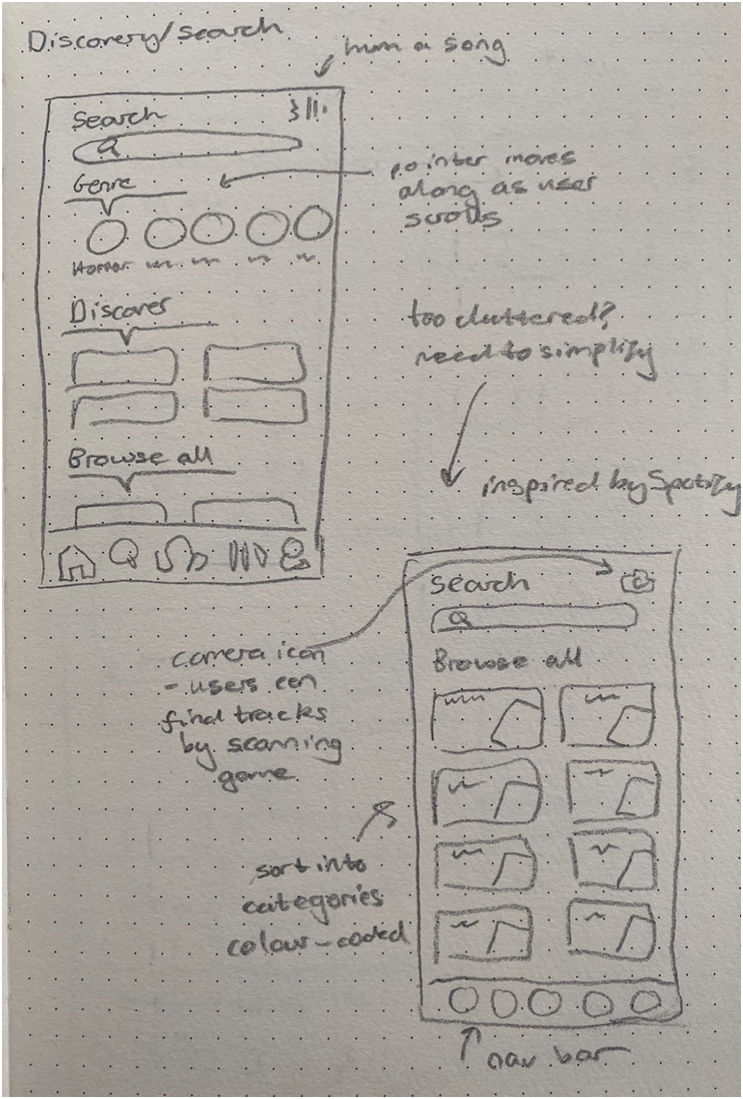 Discovery/search
hum a song
Search
Genre
pointer moves
along as user
scrolls
Horror
Discover
too cluttered?
need to simplify
Browse all
inspired by Spotify
Search
camera icon
- users can
find tracks
by scanning
game
Browse all
sort into
categories
colour-coded
nav bar